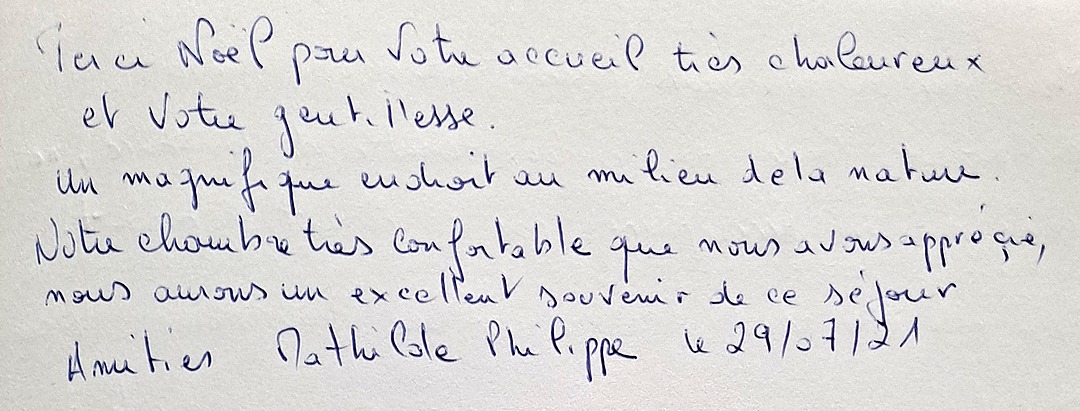 Merci Noël pour votre accueil très chaleureux
et votre gentillesse.
Un magnifique endroit au milieu de la nature.
Notre chambre très confortable que nous avons appréçié,
nous aurons un excellent souvenir de ce séjour
Amitiés Mathilde Philippe le 29/07/21